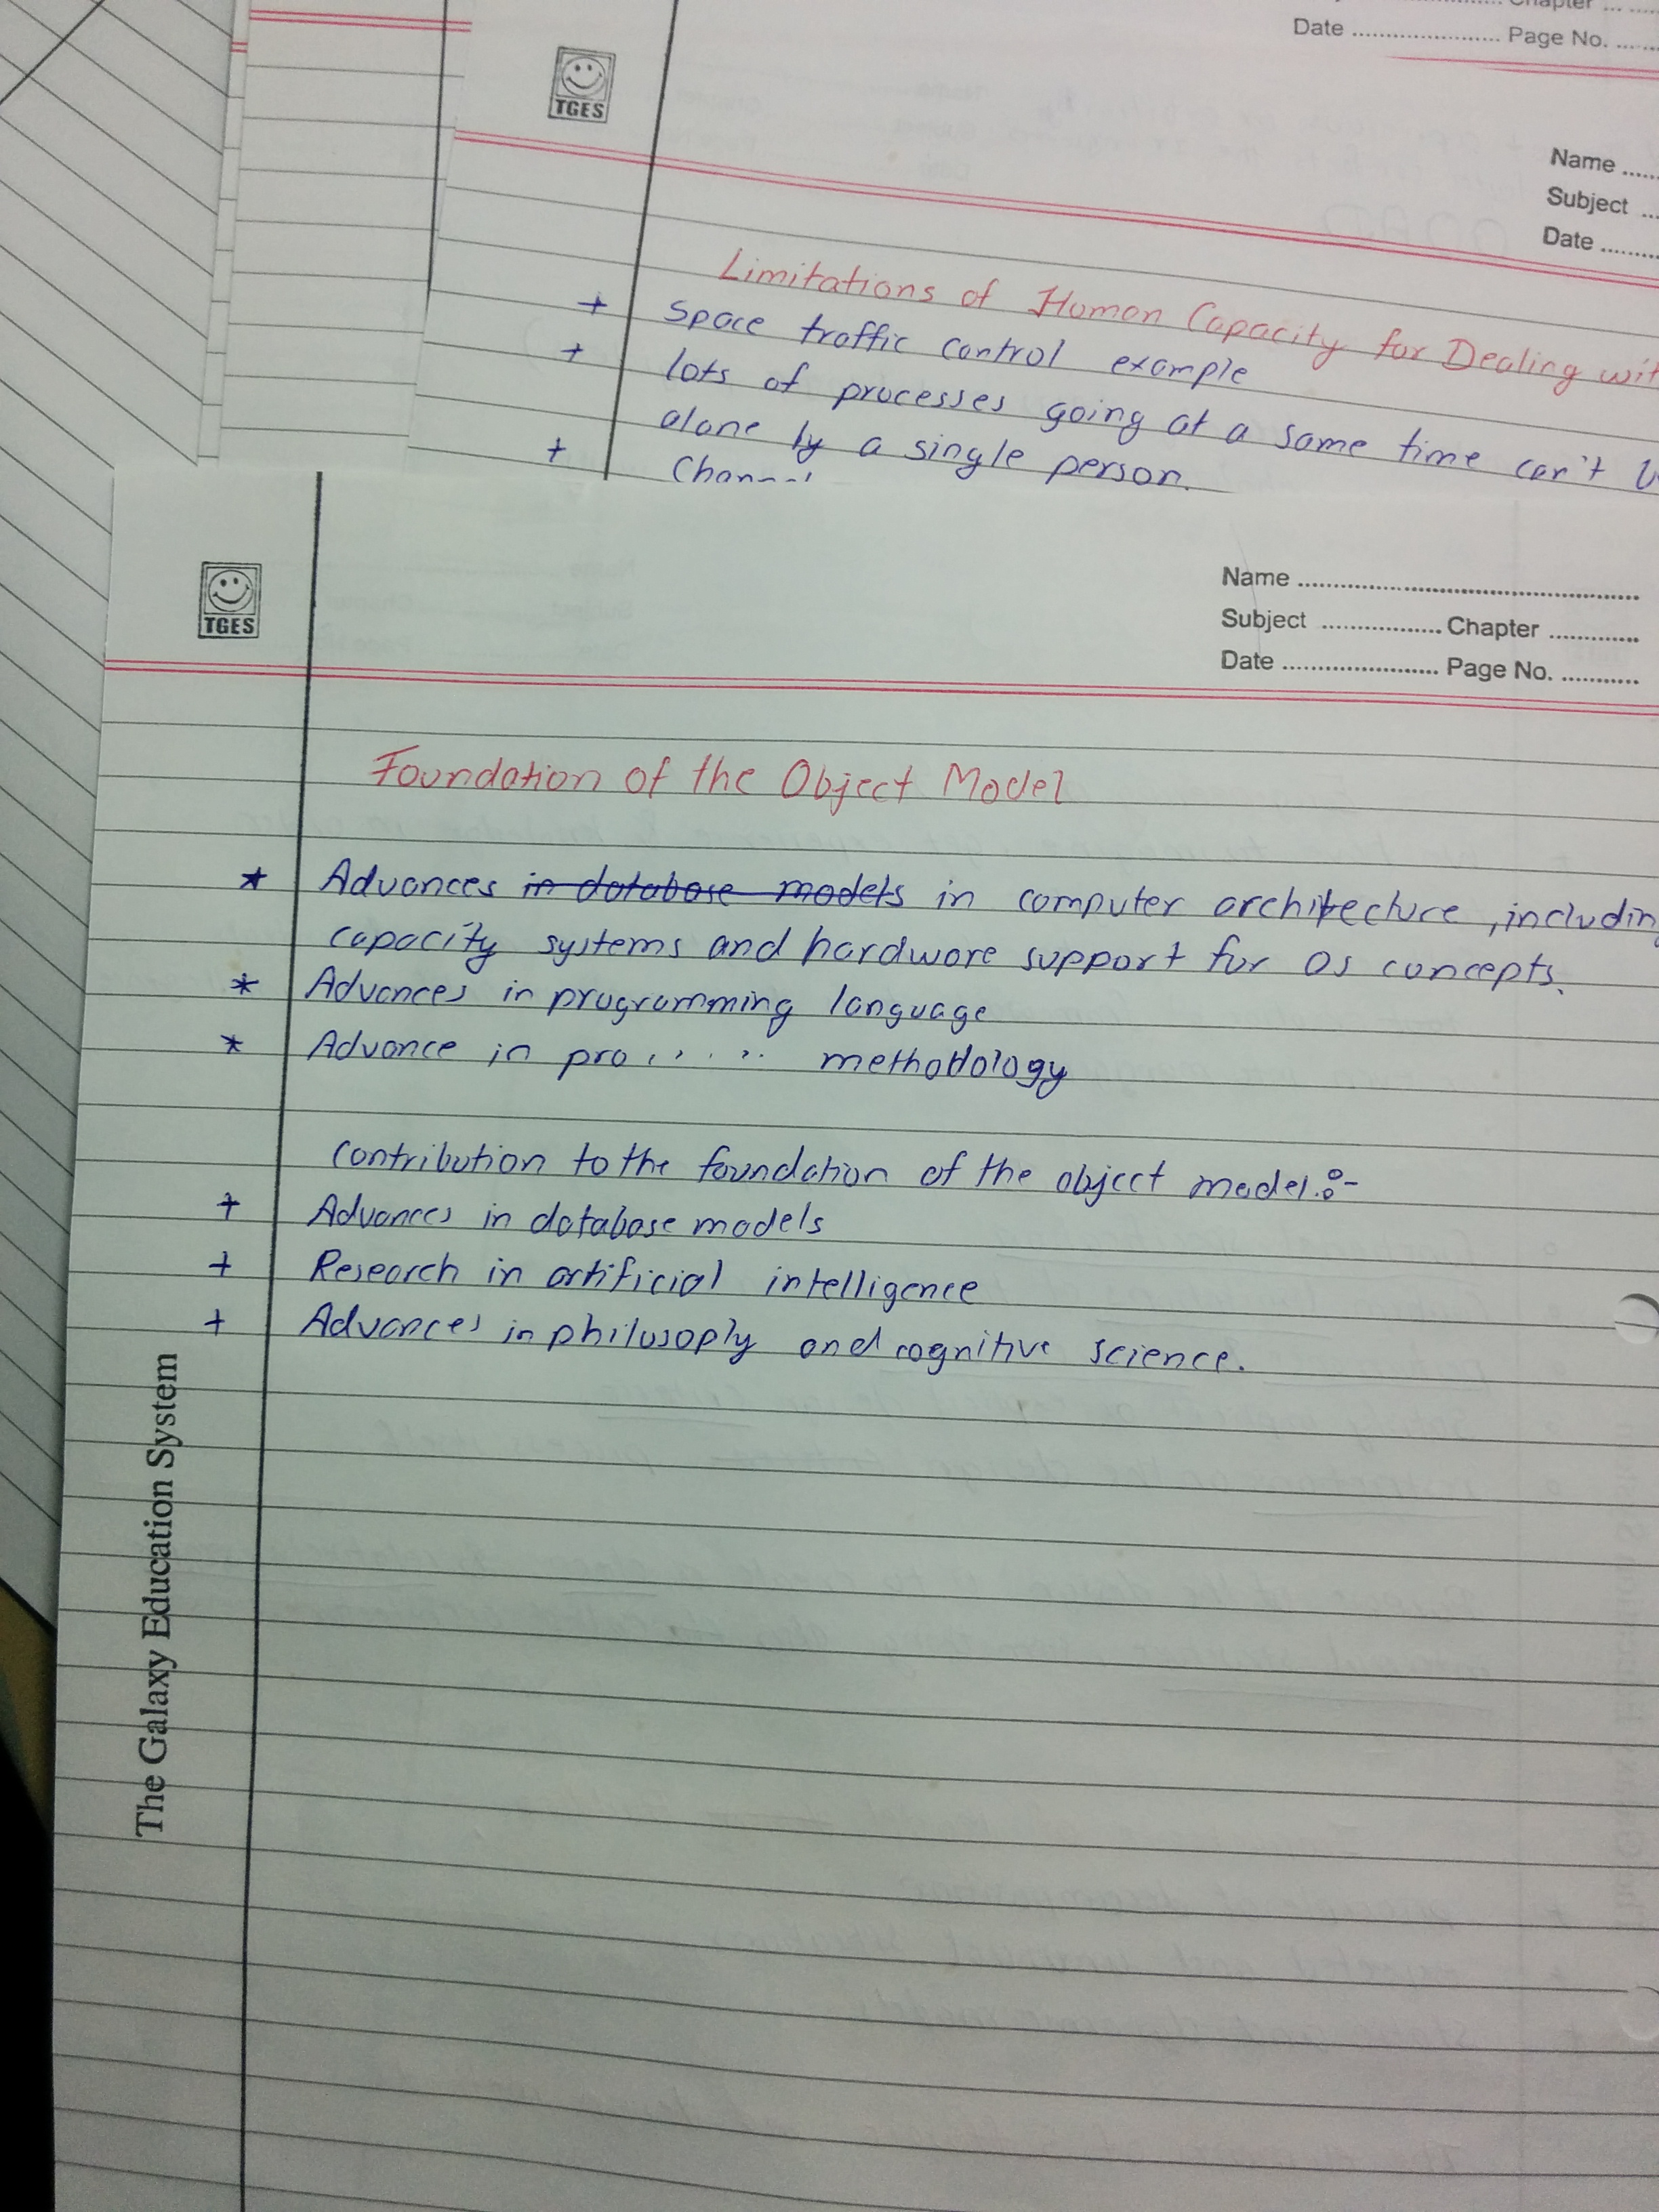 Chapter
Date ........................ Page No. ......
TGES
Name ......
Subject ...
Date ........
Limitations of Human Capacity for Dealing wit
+ Space traffic control example
+ lots of processes going at a same time can't
alone by a single person.
+
TGES
Name ................................................
Subject .................. Chapter .............
Date ....................... Page No. ............
Foundation of the Object Model
* Advances in database models in computer architecture, includin
capacity systems and hardware support for OS concepts.
* Advances in programming language
* Advance in pro , , . , , . . methodology
Contribution to the foundation of the object model.:-
+ Advances in database models
+ Research in artificial intelligence
+ Advances in philosoply and cognitive science.
The Galaxy Education System